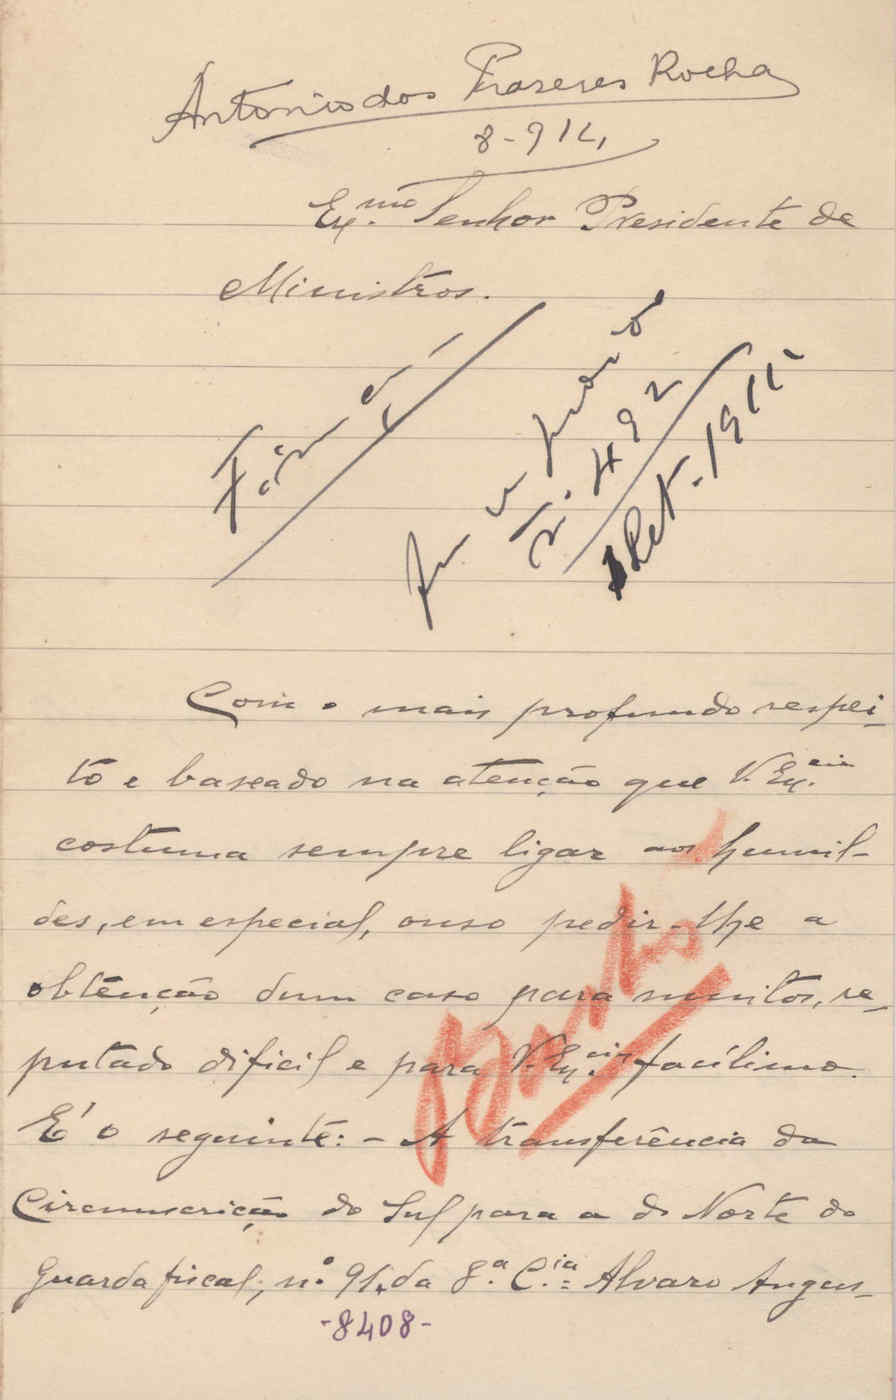 Antonio dos Prazeres Rocha
8-9 14,
Ex.mo Senhor Presidente de
Ministros.
n.º 492
Set. 1911
Com o mais profundo respei-
to e baseado na atenção que V. Ex.cia
costuma sempre ligar aos humil-
des, em especial, ouso pedir-lhe a
obtenção dum caso para muitos, re-
putado dificil e para V. Ex.cia facílimo.
É o seguinte: - A transferência da
Circunscrição do Sul para a do Norte do
Guarda fiscal, n.º 91, da 8.ª C.ia = Alvaro Augus-
-8408-